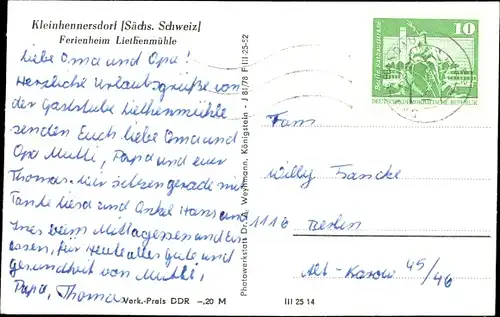 Kleinhennersdorf [Sächs. Schweiz]
Ferienheim Liethenmühle
Liebe Oma und Opa!
Herzliche Urlaubsgrüße von
der Gaststube Liethenmühle
senden Euch liebe Oma und
Opa Mutti, Papa und euer
Thomas. Wir sitzen gerade mit
Tante und Onkel Hans und
beim Mittagessen und
essen, für Heute alles Gute und
gesundheit von Mutti,
Papa, Thomas
Verk.-Preis DDR -,20 M
Photowerkstatt Dr. A. Weyhmann, Königstein - J 81/78 F III-25-52
III 25 14
10
DEUTSCHE DEMOKRATISCHE REPUBLIK
Fam
Willy
1116 Berlin
Alt-Karow 45/46